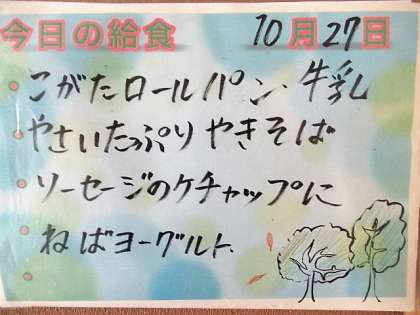 今日の給食 10月27日
こがたロールパン・牛乳
やさいたっぷりやきそば
ソーセージのケチャップに
ねばヨーグルト